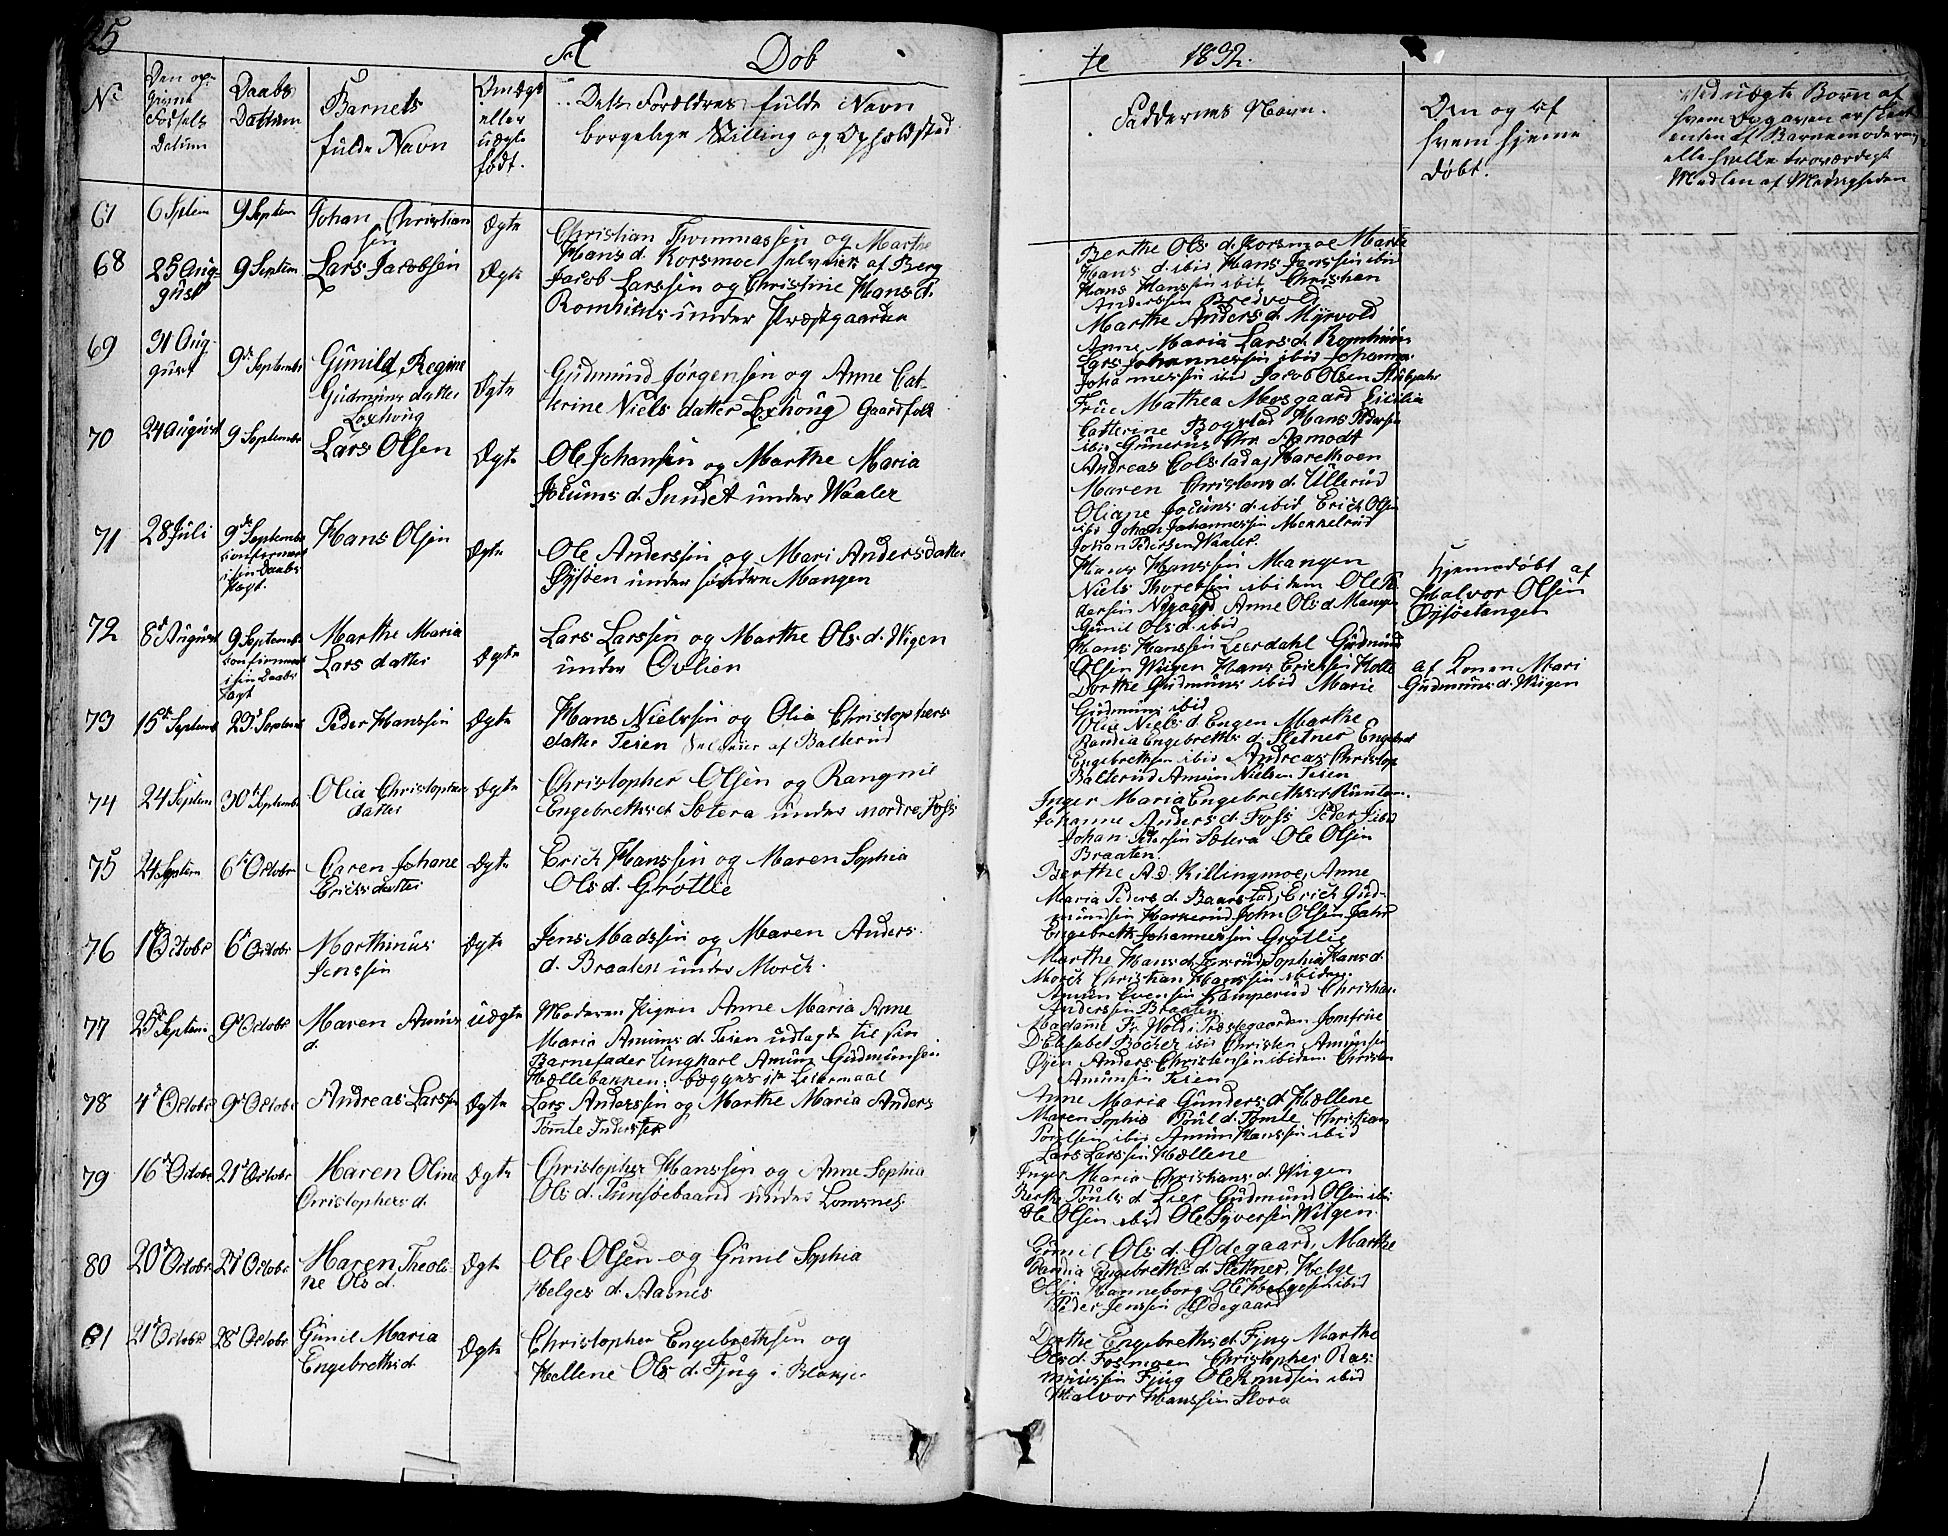 25
Døb te 1832.
No
Den op-
givne
Fødsels
Datum
Daabs
Datum
Barnets
fulde Navn
Om ægte
eller
uægte
født.
Dets Forældres fulde Navn
borgelige Stilling og Opholdsted
Faddernes Navn.
Den og af
hvem hjeme
døbt.
Ved uægte Børn af
67 6 Septem 9 Septem Johan Christian
sen
Ægte
Christian Thommassen og Marthe
Hans d. Korsmoe selveier af Berg
Berthe Ols d. Korsmoe Marte
Hans d. ibid Hans Jenssen ibid
Hans Hanssen ibid Christian
Anderssen Bredvold
68 25 Aug-
gust
9 Septem Lars Jacobsen Ægte
Jacob Larssen og Christine Hans d.
Romhiins under Præstgaarden
Marthe Anders d. Myrvold
Anne Maria Lars d.
Lars Johannessen ibid Johannes
Johannessen ibid Jacob Olsen
69 31 Aug-
gust
9de Septembr Gunild Regine
Gudmuns datter
Loxhoug
Ægte
Gudmund Jørgensen og Anne Cat-
trine Niels datter Loxhoug Gaardfolk
Frue Mathea Mosgaard Cicilia
Catterine Bogstad Hans Pedersen
ibid
Andreas Colstad
70 24 August 9 Septembr Lars Olsen Ægte
Ole Johansen og Marthe Maria
Jocums d. Sundet under Waaler
Maren Christens d. Ullerud
Oliane Jocums d. ibid Erich Olsen
ibid Johan Johannessen
Johan Pedersen Waaler.
71 28 Juli 9de Septembr
confirmert
i sin Daabs
Pagt.
Hans Olsen Ægte
Ole Anderssen og Mari Andersdatter
Øysøen under søndre Mangen
Hans Hanssen Mangen
Niels Thoresen ibidem Ole Pe-
dersen Anne Ols d Mangen
Gunil Ols d. ibid
Hjemedøbt af
Halvor Olsen
Øysøetangen
72 8de August 9 Septembr
confirmert
i sin Daabs
Pagt
Marthe Maria
Lars datter
Ægte
Lars Larssen og Marthe Ols d. Wigen
under Ovlien
Hans Hanssen Leerdahl Gudmund
Olsen Wigen Hans Erichsen Holte
Dorthe Gudmuns ibid Marie
Gudmuns ibid
af Konen Mari
Gudmuns d. Wigen
73 15de Septemb 23de Septemb Peder Hanssen Ægte
Hans Nielssen og Olia Christophers
datter Teien selveier af Balterud
Olia Niels d. Engen Marthe
Randia Engebreths d. Sletner Engebret
Engebrethsen ibid Andreas Christop
Balterud Amun Nielsen Teien
74 24 Septem 30te Septembr Olia Christophers
datter
Ægte
Christopher Olsen og Rangnil
Engebreths d. Sætera under nordre Foss
Inger Maria Engebreths d.
Johanne Anders d. Foss Peder ibid
Johan Pedersen Sætera Ole Olsen
Braaten.
75 24 Septem 6te Octobr Caren Johane
Erichs datter
Ægte
Erich Hanssen og Maren Sophia
Ols d. Grøtlie
Berthe A. d. Killingmoe, Anne
Maria Peders d. Baarstad, Erich Gud-
mundsen Harkerud John Olsen
Engebreth Johannessen Grøtlie
76 1de Octobr 6te Octobr Marthinus
Jenssen
Ægte
Jens Madssen og Maren Anders
d. Braaten under Morck.
Marthe Hans d. Sophia Hans d.
Morck Christian Hanssen ibidem.
Amun Evensen Kamperud Christian
Anderssen Braaten
77 25de Septem 9de Octobr Maren Amuns
d.
uægte
Moderen Pigen Anne Maria Anne
Maria Amuns d. Teien udlagde til sin
Barnefader Ungkarl Amun Gudmunsen
Hællebakken: begges 1ste Leiermaal
Madame Fr. Wold i Præstegaarden Jomfrue
D Elisabet Bøcher ibid Christen Amunsen
Øyen Anders Christensen ibidem Christen
Amunsen Teien
78 4de Octobr 9de Octobr Andreas Larssen Ægte
Lars Anderssen og Marthe Maria Anders
Tomte Inderster
Anne Maria Gunders d. Hællene
Maren Sophia Poul d. Tomte Christian
Poulsen ibid Amun Hanssen ibid
Lars Larssen Hællene
79 16de Octobr 21de Octobr Maren Oline
Christophers d.
Ægte
Christopher Hanssen og Anne Sophia
Ols d. Tunsøebaand under Lomsnes
Inger Maria Christians d. Wiigen
Berthe Pouls d. Lier Gudmund Olsen ibi
Ole Olsen ibid Ole Syversen Wiigen.
80 20de Octobr 21de Octobr Maren Theoli-
ne Ols d.
Ægte
Ole Olsen og Gunil Sophia
Helges d. Aasnes
Gunil Ols d. Ødegaard, Marthe
Randia Engebreths d. Slettner, Helge
Olsen Hanneborg Ole Helgesen ibid
Peder Jenssen Ødegaard
81 21de Octobr 28de Octobr Gunil Maria
Engebreths d.
Ægte
Christopher Engebrethsen og
Hellene Ols d. Fjug i Blakjer
Dorthe Engebreths d. Fjug Marthe
Ols d. Fosmoen Christopher Ras-
mussen Fjug Ole Knudsen ibid
Halvor Hanssen Slora